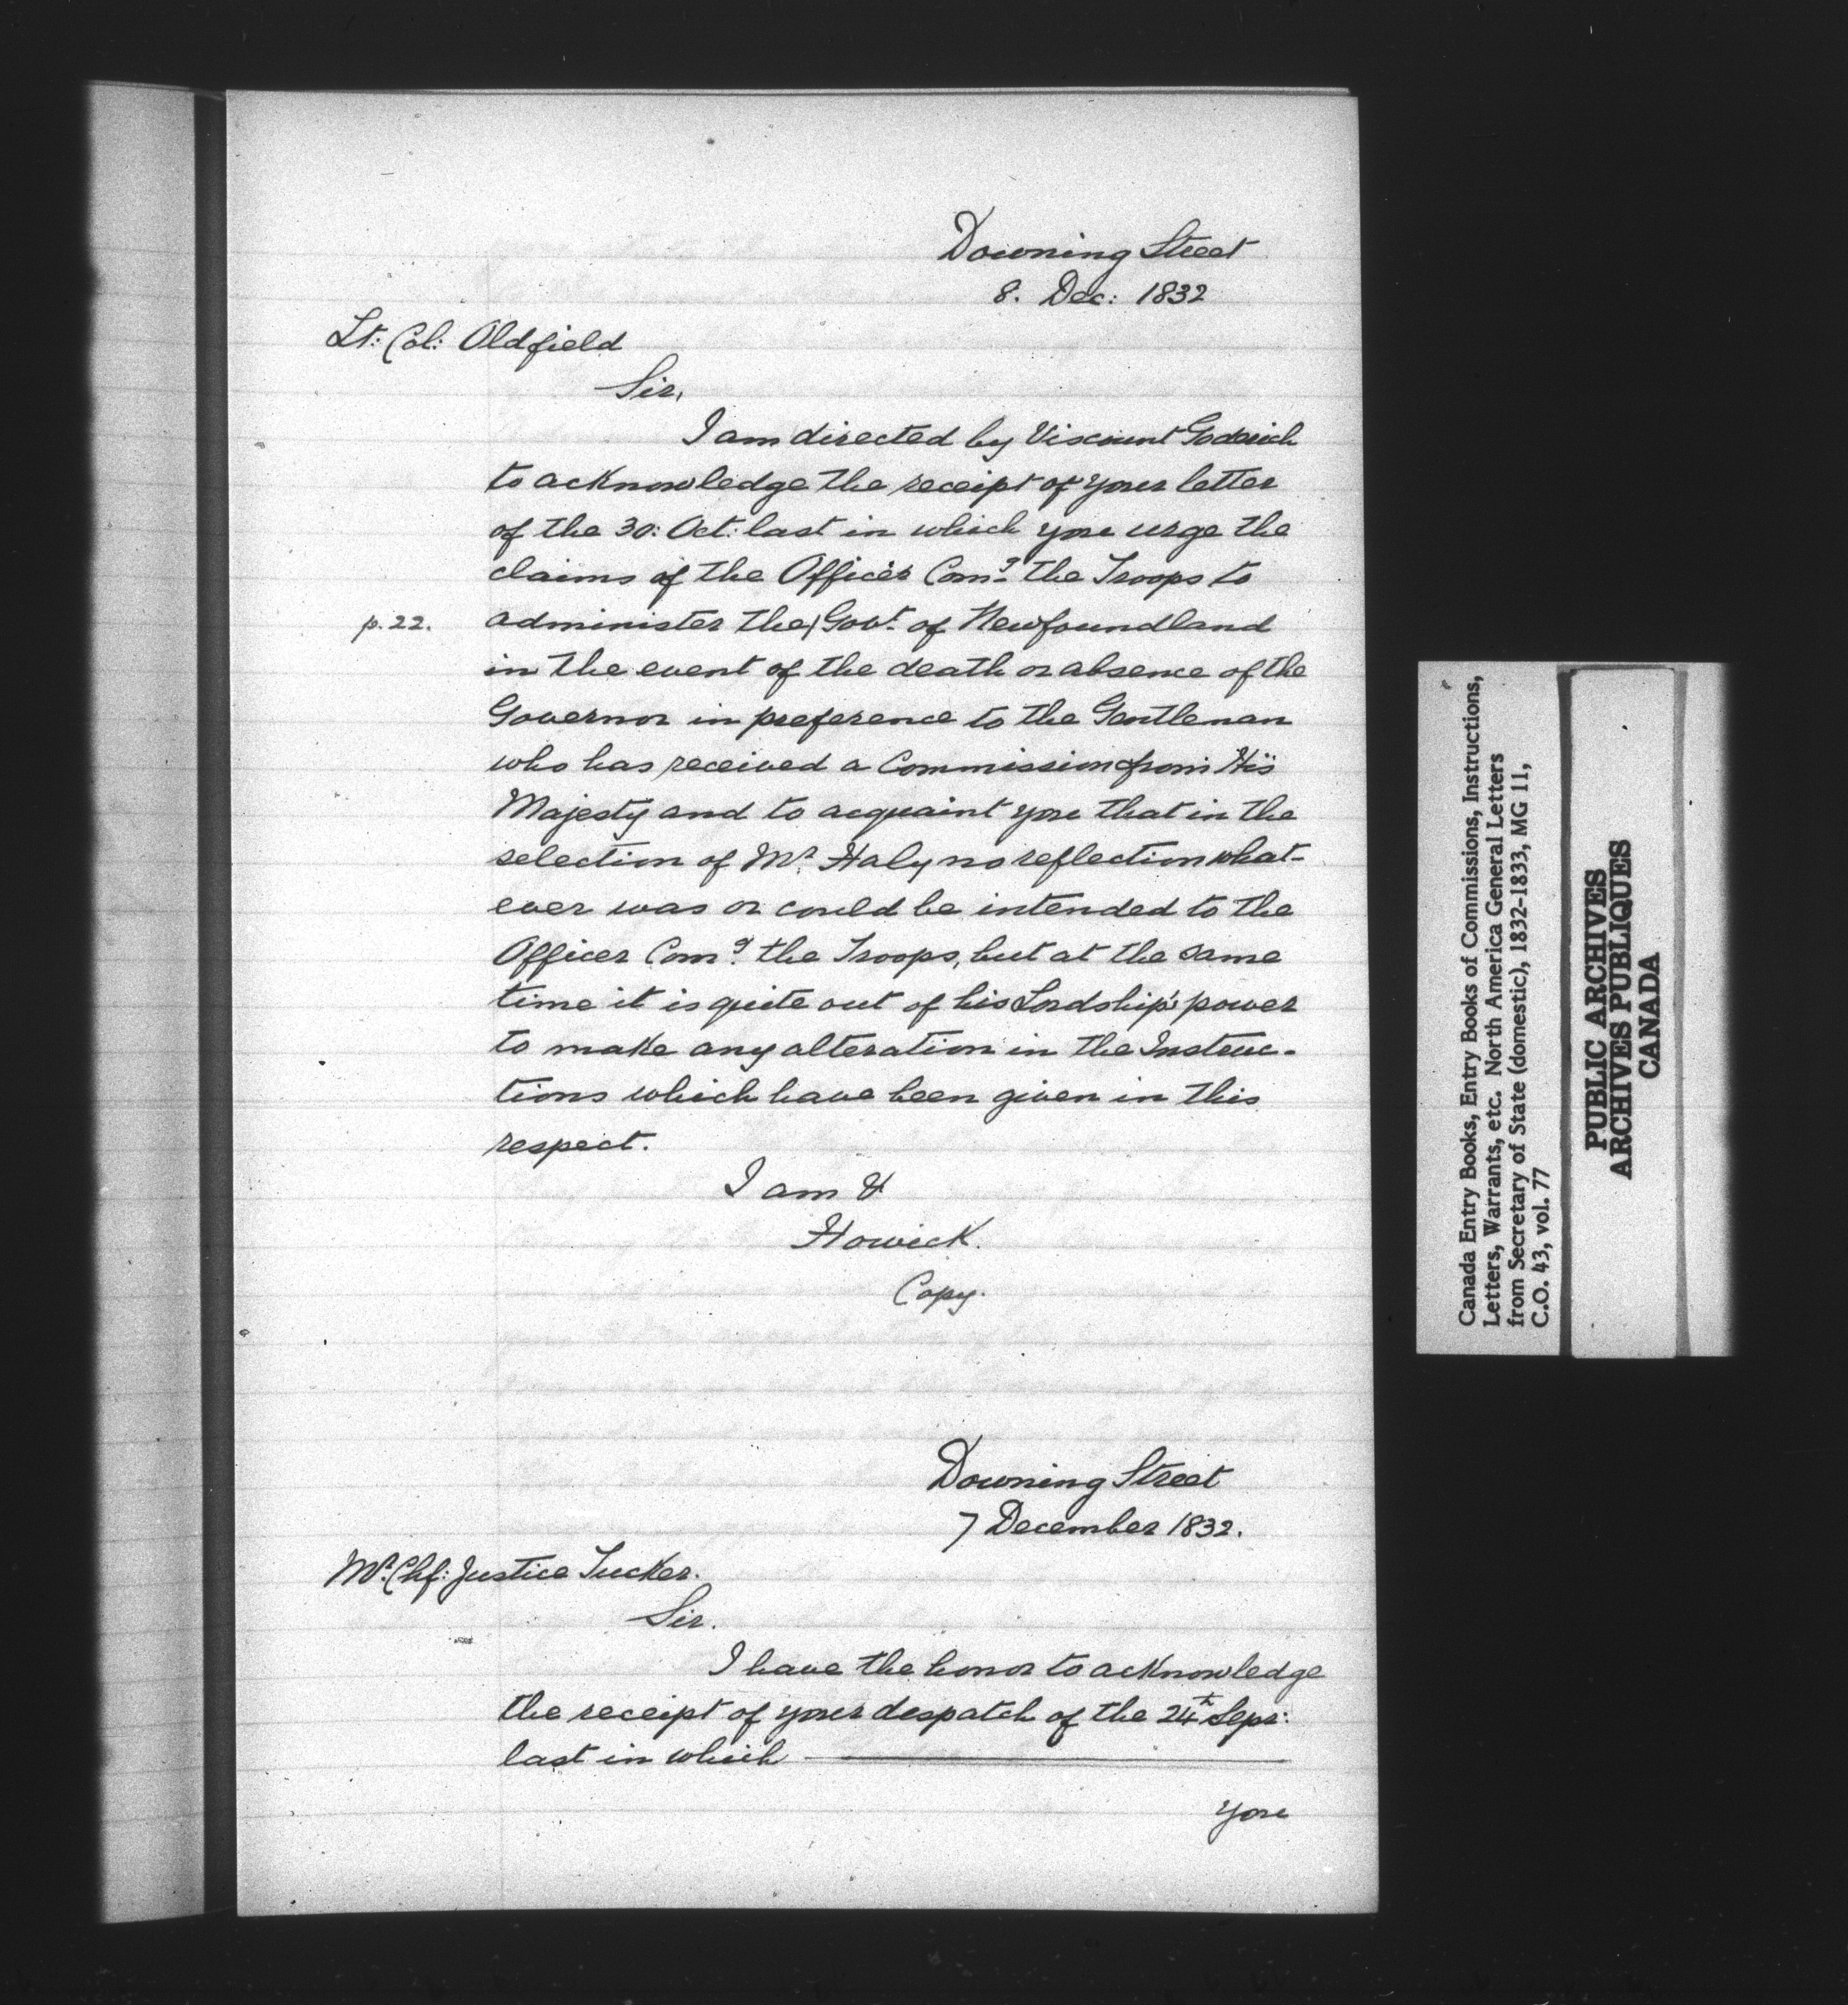 Downing Street
8. Dec: 1832
Lt: Col: Oldfield
Sir,
I am directed by Viscount Goderich
to acknowledge the receipt of your letter
of the 30: Oct: last in which you urge the
claims of the Officer Comg. the Troops to
p. 22. administer the/Govt. of Newfoundland
in the event of the death or absence of the
Governor in preference to the Gentleman
who has received a Commission from His
Majesty and to acquaint you that in the
selection of Mr. Haly no reflection what-
ever was or could be intended to the
Officer Comg. the Troops, but at the same
time it is quite out of his Lordship's power
to make any alteration in the Instruc-
tions which have been given in this
respect.
I am &
Howick.
Copy.
Downing Street
7 December 1832.
Mr. Chf: Justice Tucker.
Sir.
I have the honor to acknowledge
the receipt of your despatch of the 24th Sepr:
last in which
you
Canada Entry Books, Entry Books of Commissions, Instructions,
Letters, Warrants, etc. North America General Letters
from Secretary of State (domestic), 1832-1833, MG 11,
C.O. 43, vol. 77
PUBLIC ARCHIVES
ARCHIVES PUBLIQUES
CANADA